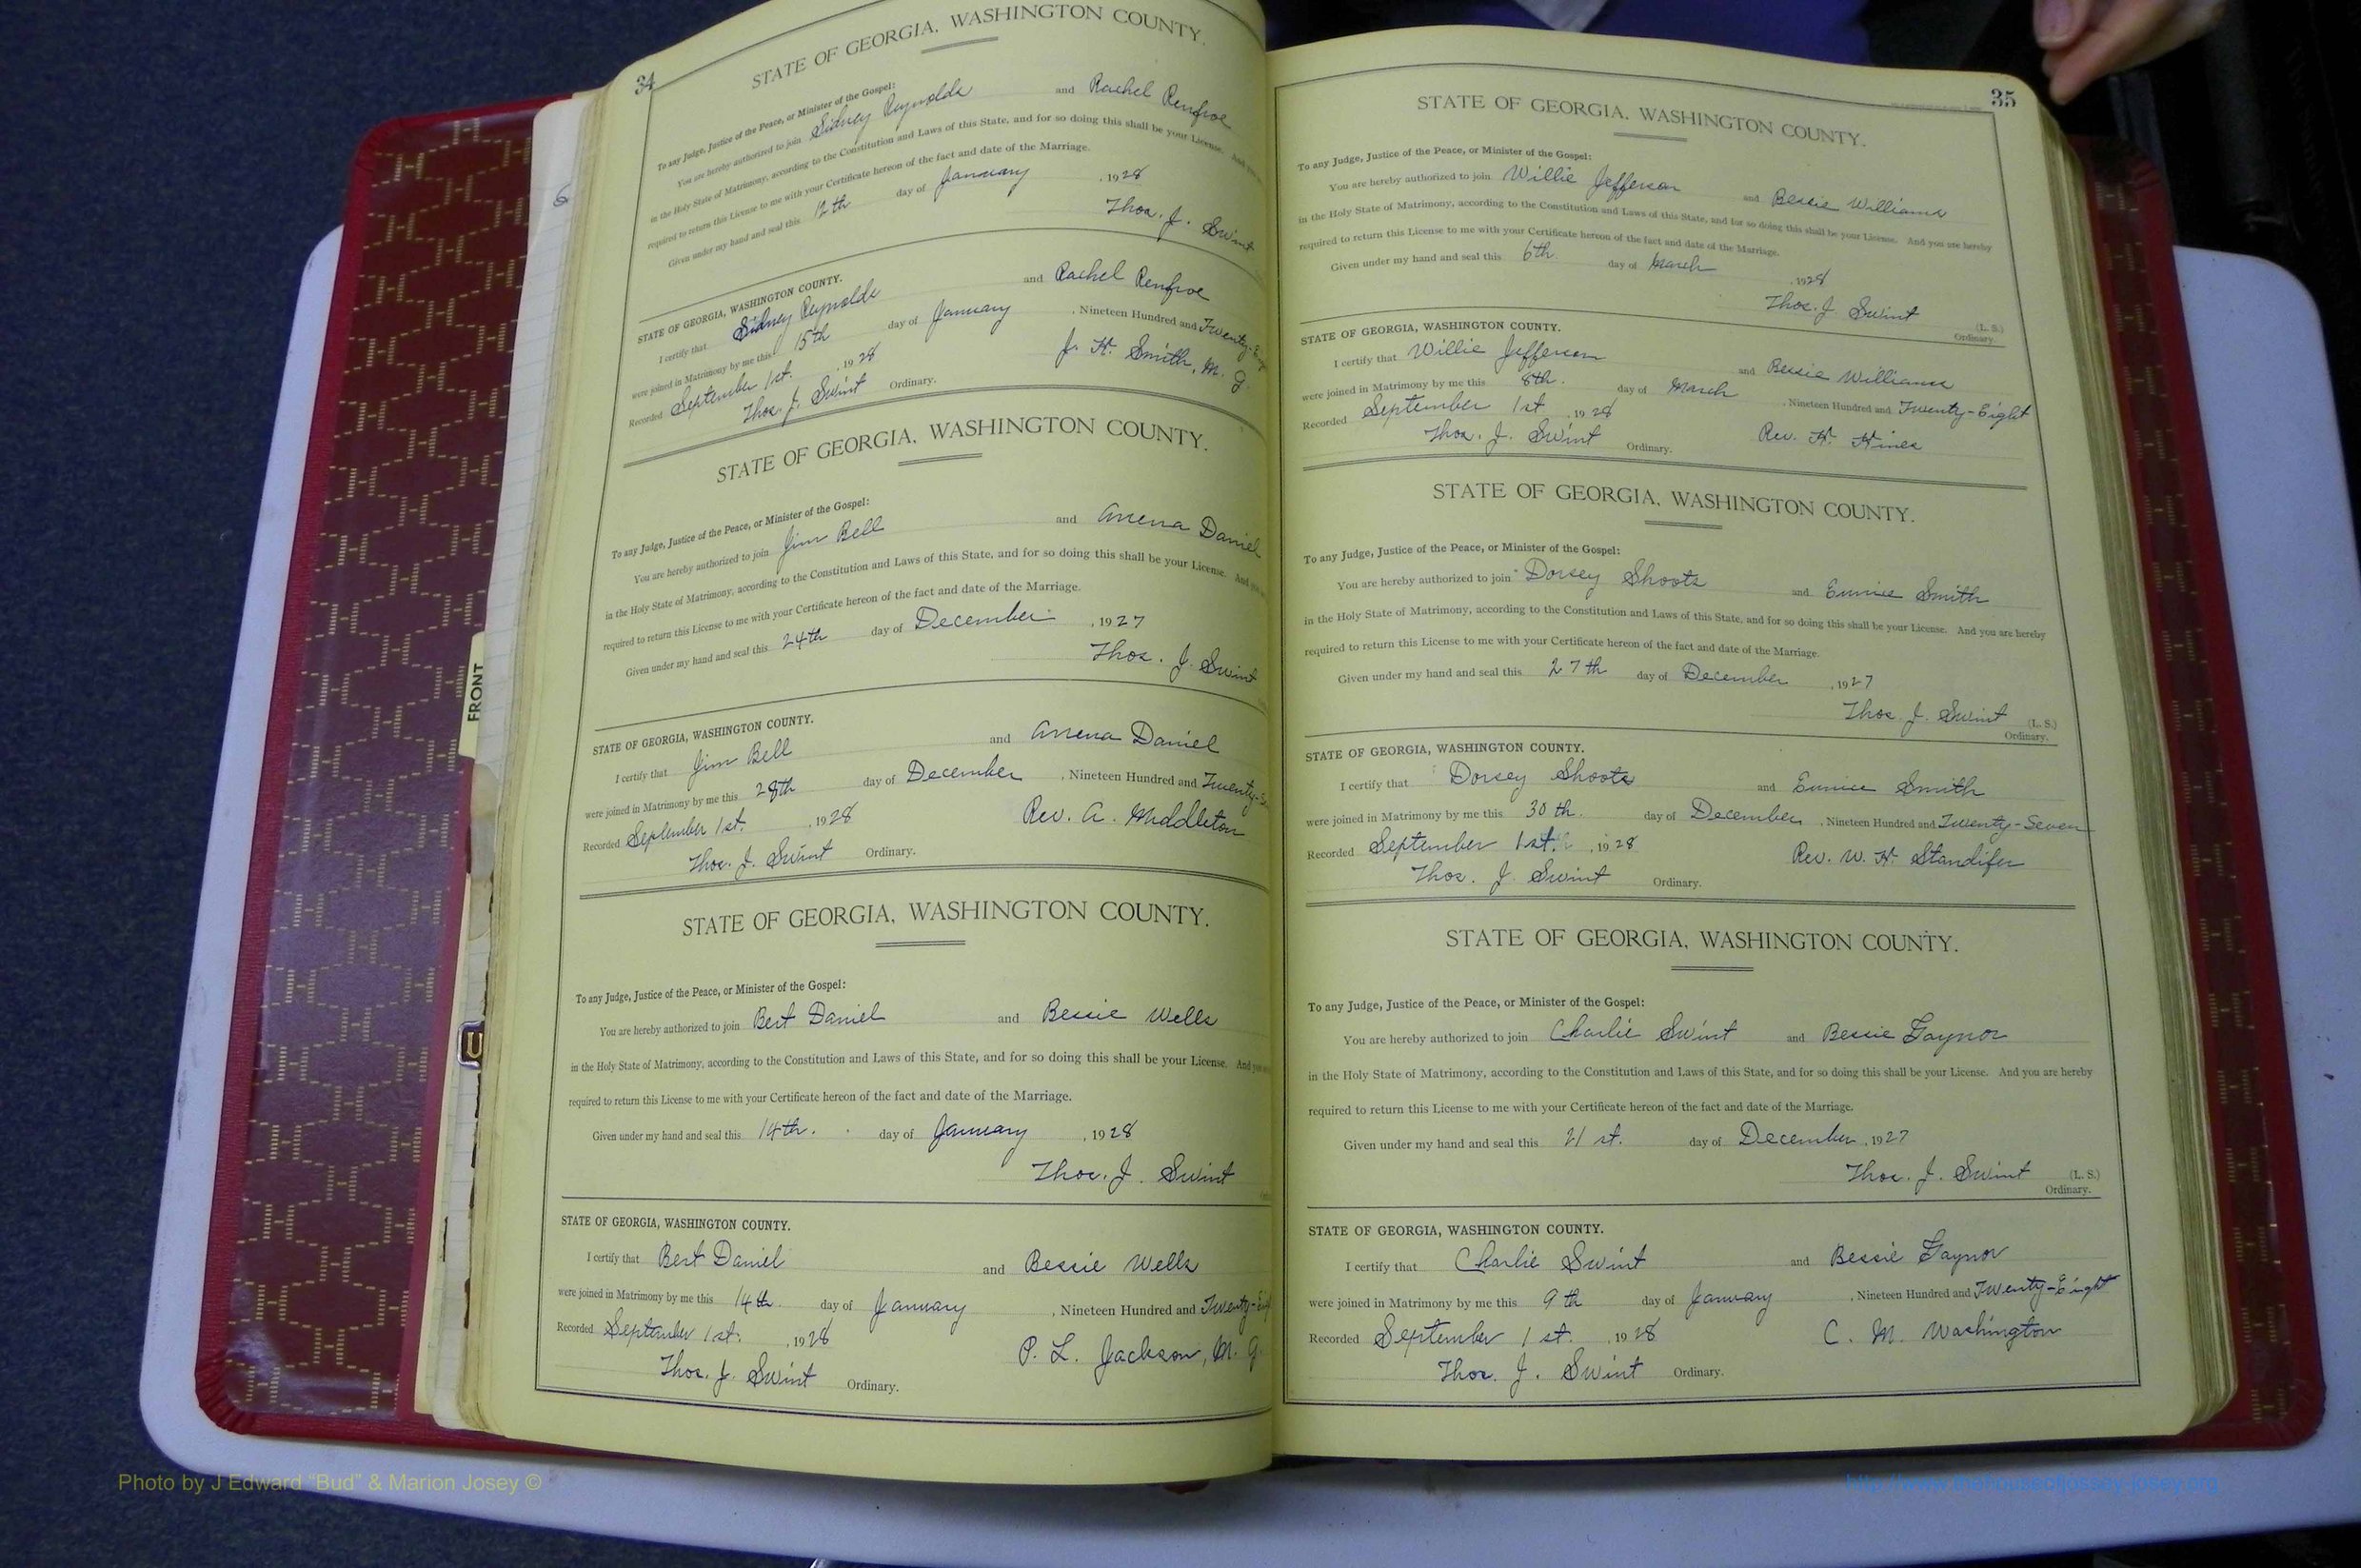 34
STATE OF GEORGIA, WASHINGTON COUNTY.
To any Judge, Justice of the Peace, or Minister of the Gospel:
You are hereby authorized to join Sidney Reynolds and Rachel Renfroe
in the Holy State of Matrimony, according to the Constitution and Laws of this State, and for so doing this shall be your License. And you
required to return this License to me with your Certificate hereon of the fact and date of the Marriage.
Given under my hand and seal this 12th day of January, 1928
Thos. J. Swint
STATE OF GEORGIA, WASHINGTON COUNTY.
I certify that Sidney Reynolds and Rachel Renfroe
were joined in Matrimony by me this 15th day of January, Nineteen Hundred and Twenty-
Recorded September 1st. , 1928 J. H. Smith, M. G.
Thos. J. Swint Ordinary.
STATE OF GEORGIA, WASHINGTON COUNTY.
To any Judge, Justice of the Peace, or Minister of the Gospel:
You are hereby authorized to join Jim Bell and Daniel
in the Holy State of Matrimony, according to the Constitution and Laws of this State, and for so doing this shall be your License. And
required to return this License to me with your Certificate hereon of the fact and date of the Marriage.
Given under my hand and seal this 24th day of December , 1927
Thos. J. Swint
STATE OF GEORGIA, WASHINGTON COUNTY.
I certify that Jim Bell and Daniel
were joined in Matrimony by me this 28th day of December , Nineteen Hundred and Twenty-
Recorded September 1st. , 1928 Rev. A. Middleton
Thos. J. Swint Ordinary.
STATE OF GEORGIA, WASHINGTON COUNTY.
To any Judge, Justice of the Peace, or Minister of the Gospel:
You are hereby authorized to join Bert Daniel and Bessie Wells
in the Holy State of Matrimony, according to the Constitution and Laws of this State, and for so doing this shall be your License. And
required to return this License to me with your Certificate hereon of the fact and date of the Marriage.
Given under my hand and seal this 14th. day of January , 1928
Thos. J. Swint
STATE OF GEORGIA, WASHINGTON COUNTY.
I certify that Bert Daniel and Bessie Wells
were joined in Matrimony by me this 14th. day of January , Nineteen Hundred and Twenty-
Recorded September 1st. , 1928 P. L. Jackson, M. G.
Thos. J. Swint Ordinary.
35
STATE OF GEORGIA, WASHINGTON COUNTY.
To any Judge, Justice of the Peace, or Minister of the Gospel:
You are hereby authorized to join Willie Jefferson and Bessie Williams
in the Holy State of Matrimony, according to the Constitution and Laws of this State, and for so doing this shall be your License. And you are hereby
required to return this License to me with your Certificate hereon of the fact and date of the Marriage.
Given under my hand and seal this 6th. day of March , 1928
Thos. J. Swint (L. S.)
Ordinary.
STATE OF GEORGIA, WASHINGTON COUNTY.
I certify that Willie Jefferson and Bessie Williams
were joined in Matrimony by me this 8th. day of March , Nineteen Hundred and Twenty-Eight
Recorded September 1st , 1928 Rev. H. Hines
Thos. J. Swint Ordinary.
STATE OF GEORGIA, WASHINGTON COUNTY.
To any Judge, Justice of the Peace, or Minister of the Gospel:
You are hereby authorized to join Dorsey Shoots and Eunice Smith
in the Holy State of Matrimony, according to the Constitution and Laws of this State, and for so doing this shall be your License. And you are hereby
required to return this License to me with your Certificate hereon of the fact and date of the Marriage.
Given under my hand and seal this 27th day of December , 1927
Thos. J. Swint (L. S.)
Ordinary.
STATE OF GEORGIA, WASHINGTON COUNTY.
I certify that Dorsey Shoots and Eunice Smith
were joined in Matrimony by me this 30th. day of December , Nineteen Hundred and Twenty-Seven
Recorded September 1st. , 1928 Rev. W. H. Standifer
Thos. J. Swint Ordinary.
STATE OF GEORGIA, WASHINGTON COUNTY.
To any Judge, Justice of the Peace, or Minister of the Gospel:
You are hereby authorized to join Charlie Swint and Bessie Gaynor
in the Holy State of Matrimony, according to the Constitution and Laws of this State, and for so doing this shall be your License. And you are hereby
required to return this License to me with your Certificate hereon of the fact and date of the Marriage.
Given under my hand and seal this 21st. day of December , 1927
Thos. J. Swint (L. S.)
Ordinary.
STATE OF GEORGIA, WASHINGTON COUNTY.
I certify that Charlie Swint and Bessie Gaynor
were joined in Matrimony by me this 9th day of January , Nineteen Hundred and Twenty-Eight
Recorded September 1st. , 1928 C. M. Washington
Thos. J. Swint Ordinary.
FRONT
Photo by J Edward “Bud” & Marion Josey ©
http://www.thehouseofjossey-josey.org